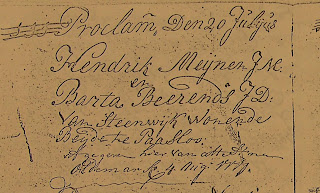 Proclam, Den 20 Julijus
Hendrik Meijner J.M.
en
Barta Beerends J:D:
van Steenwijk Wonende
Beijde te Paasloo.
hier van
Oldemark 4 Aug: